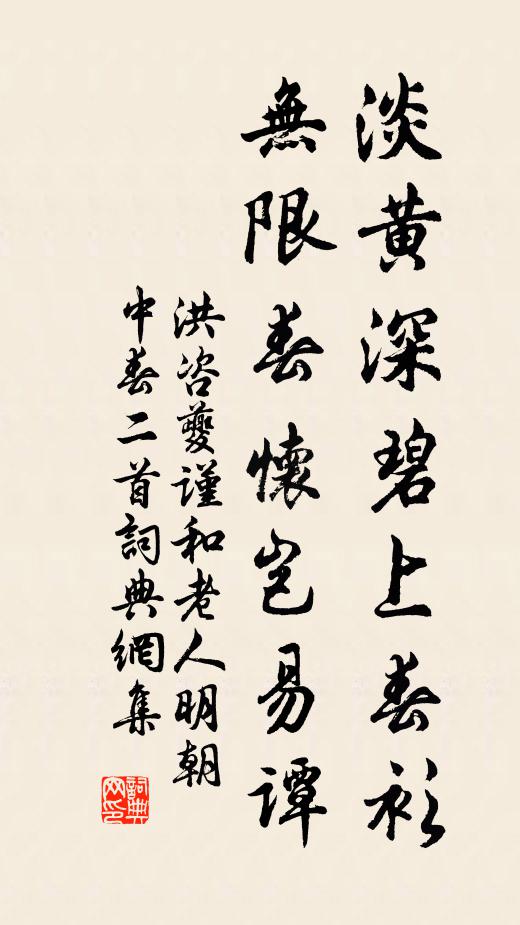 淡黃深碧上春衫
無限春懷豈易譚
洪咨夔謹和老人明朝
中春二首詞典網集
詞典網印